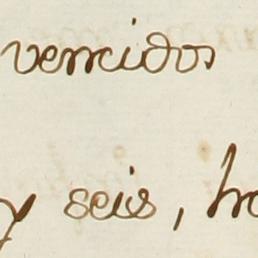 vencidos
y seis, ho